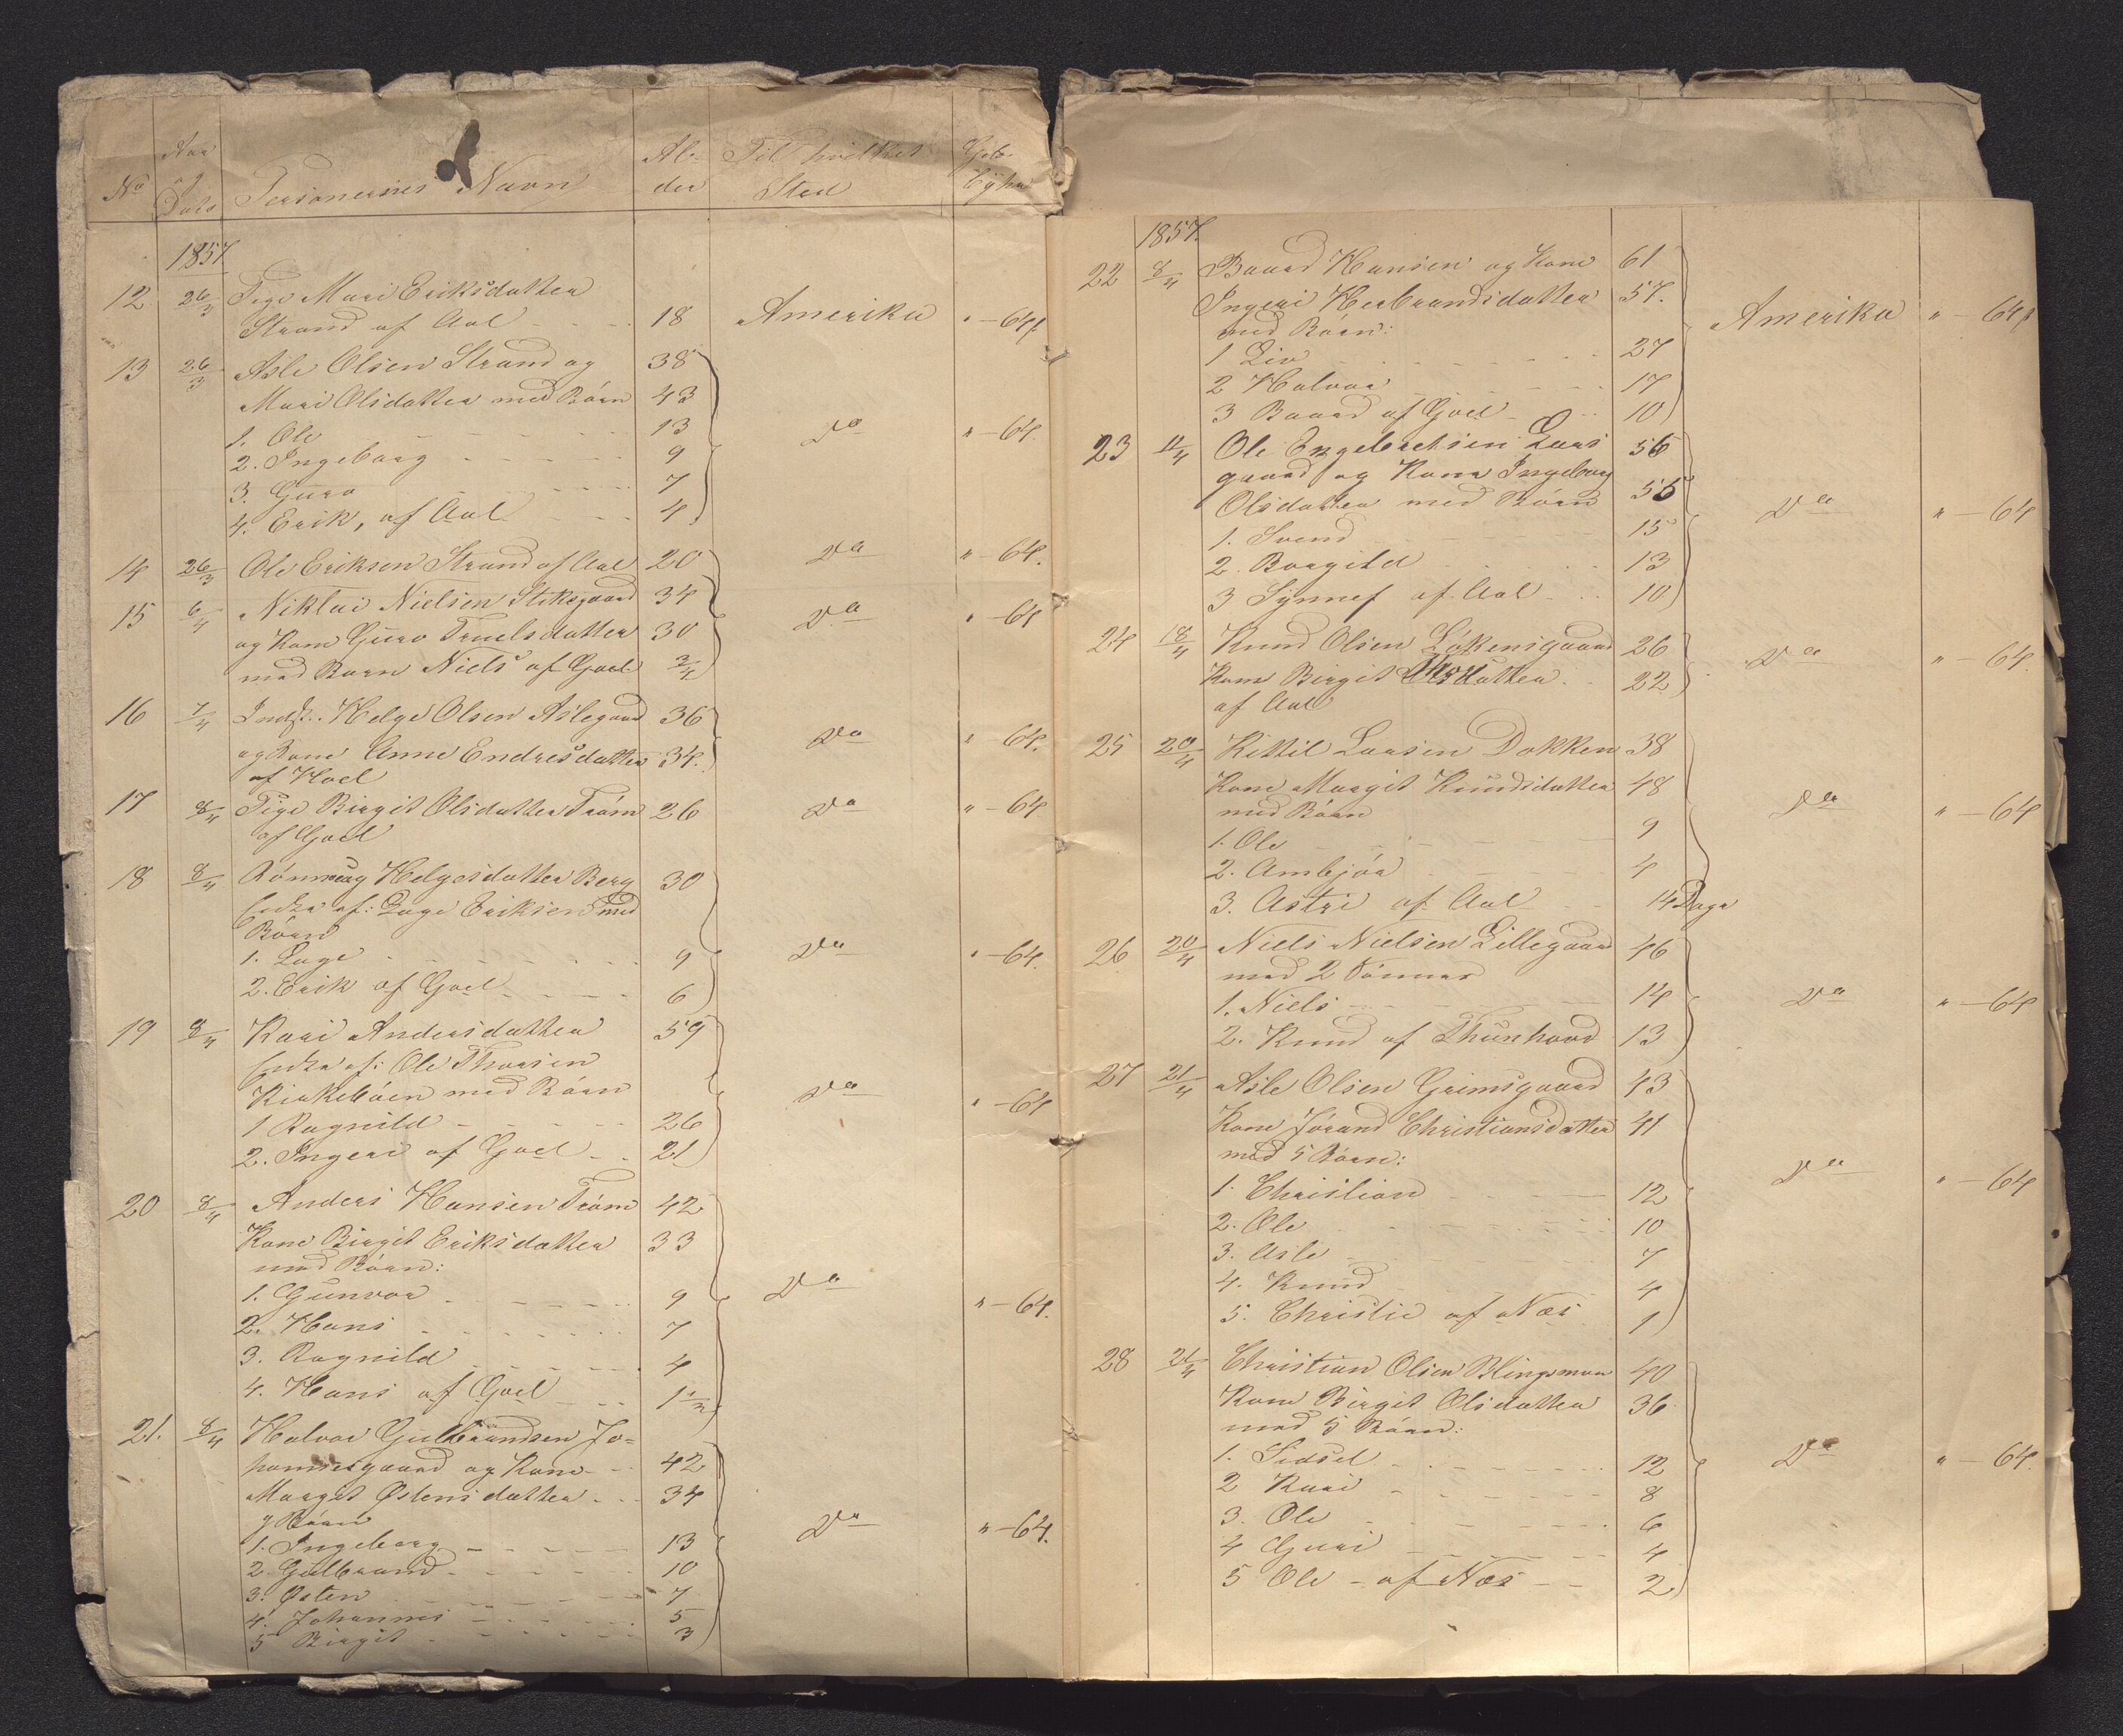 No Aar og Dato Personernes Navn Al- der Til hvilket Sted Geb- byhr
1857
12 26/3 Pige Mari Eriksdatter
Strand af Aal 18 Amerika " - 64
13 26/3 Asle Olsen Strand og 38
Mari Olsdatter med Børn 43
1. Ole 13 Do " - 64
2. Ingeborg 9
3. Guro 7
4. Erik, af Aal 4
14 26/3 Ole Eriksen Strand af Aal 20 Do " - 64.
15 6/4 Niklai Nielsen Stiksgaard 34
og Kone Guro Truelsdatter 30 Do " - 64
med Barn Niels af Goel 3/4
16 7/4 Indst. Helge Olsen Aslegaard 36
og Kone Anne Endresdatter 34. Do " - 64.
af Hoel
17 8/4 Pige Birgit Olsdatter Trøm 26 Do " - 64
af Goel
18 8/4 Rønnaug Helgesdatter Berg 30
Enke af: Lage Eriksen med
Børn
1. Lage 9 Do " - 64.
2. Erik af Goel 6
19 8/4 Kari Andersdatter 59
Enke af: Ole Thorsen
Kirkebøen med Børn Do " - 64
1 Ragnild 26
2. Ingeri af Goel 21
20 8/4 Anders Hansen Trøm 42
Kone Birgit Eriksdatter 33
med Børn:
1. Gunvor 9 Do " - 64.
2. Hans 7
3. Ragnild 4
4. Hans af Goel 1 1/2
21. 8/4 Halvor Gulbrandsen Jo=
hannesgaard og Kone 42
Margit Østensdatter 34
Børn
1. Ingeborg 13 Do " - 64.
2. Gulbrand 10
3. Østen 7
4. Johannes 5
5 Birgit 3
1857.
22 8/4 Baard Hansen og Kone 61
Ingeri Herbrandsdatter 57.
med Børn: Amerika " - 64
1 Liv 27
2 Halvor 17
3 Baard af Goel 10
23 11/4 Ole Engebretsen Lars 56
gaard og Kone Ingeborg
Olsdatter med Børn 55 Do " - 64
1. Svend 15
2. Borgild 13
3 Synnef af Aal 10
24 18/4 Knud Olsen Løkensgaard 26 Do " - 64.
Kone Birgit datter 22
af Aal
25 20/4 Kittil Larsen Dokken 38
Kone Margit Knudsdatter 48
med Børn Do " - 64
1. Ole 9
2. Ambjør 4
3. Astri af Aal 14 Dage
26 20/4 Niels Nielsen Lillegaard 46
med 2 Sønner
1. Niels 14 Do " - 64
2. Knud af Thunhovd 13
27 21/4 Asle Olsen Grimsgaard 43
Kone Jørand Christiansdatter 41
med 5 Børn:
1. Christian 12 Do " - 64
2. Ole 10
3. Asle 7
4. Knud 4
5. Christie af Næs 1
28 21/4 Christian Olsen Blingsmoen 40
Kone Birgit Olsdatter 36
med 5 Børn:
1. Sidsel 12 Do " - 64.
2 Kari 8
3. Ole 6
4 Guri 4
5 Ole - af Næs 2